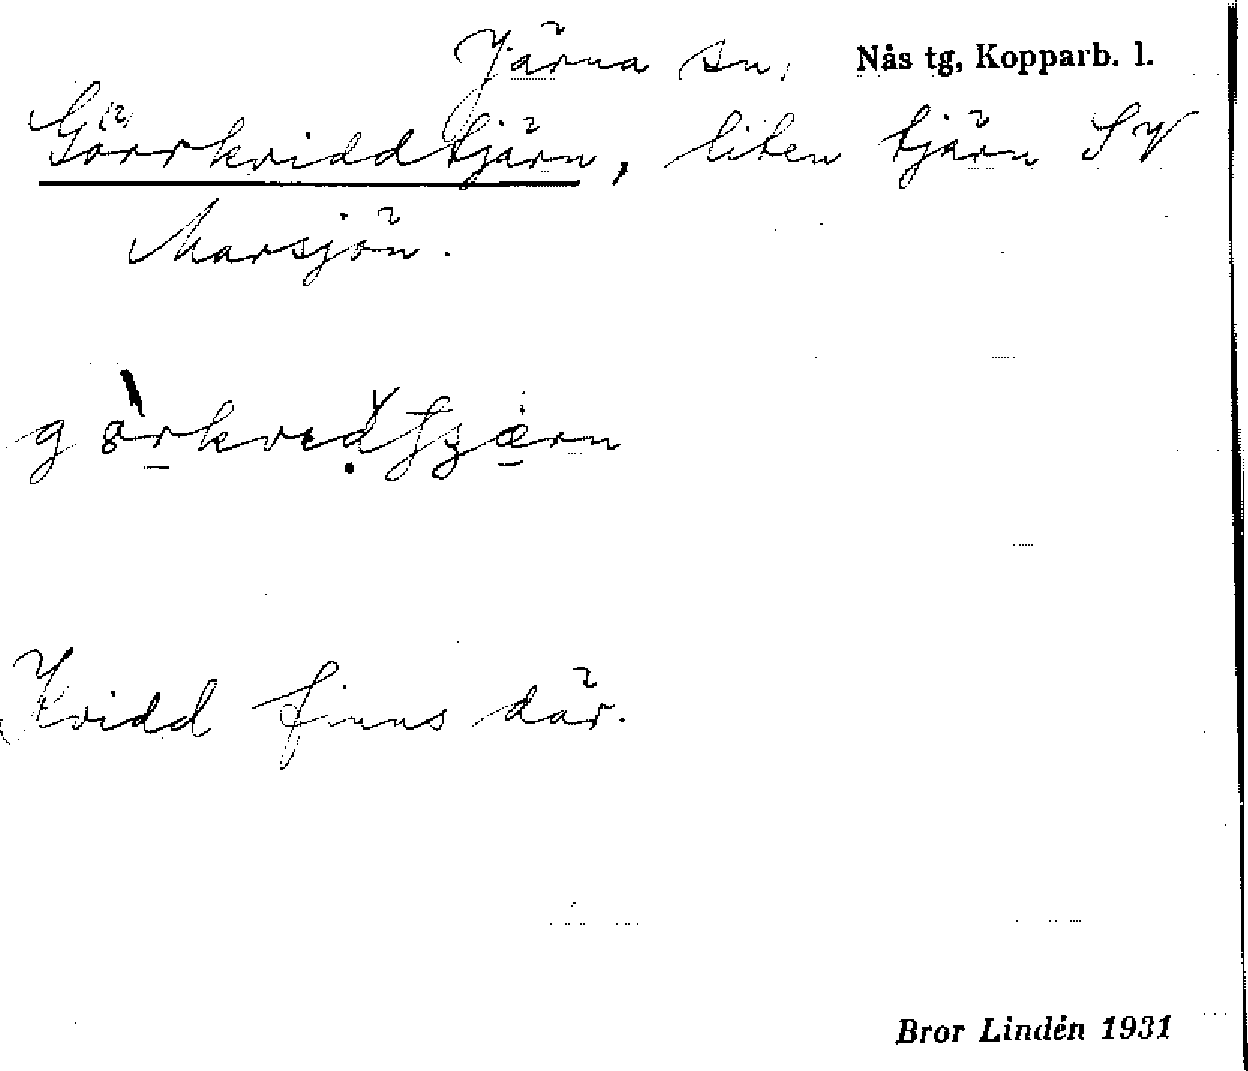 Järna sn, Nås tg, Kopparb. l.
Görrkviddtjärn, liten tjärn SV
Marsjön.
Kvidd finns där.
Bror Lindén 1931